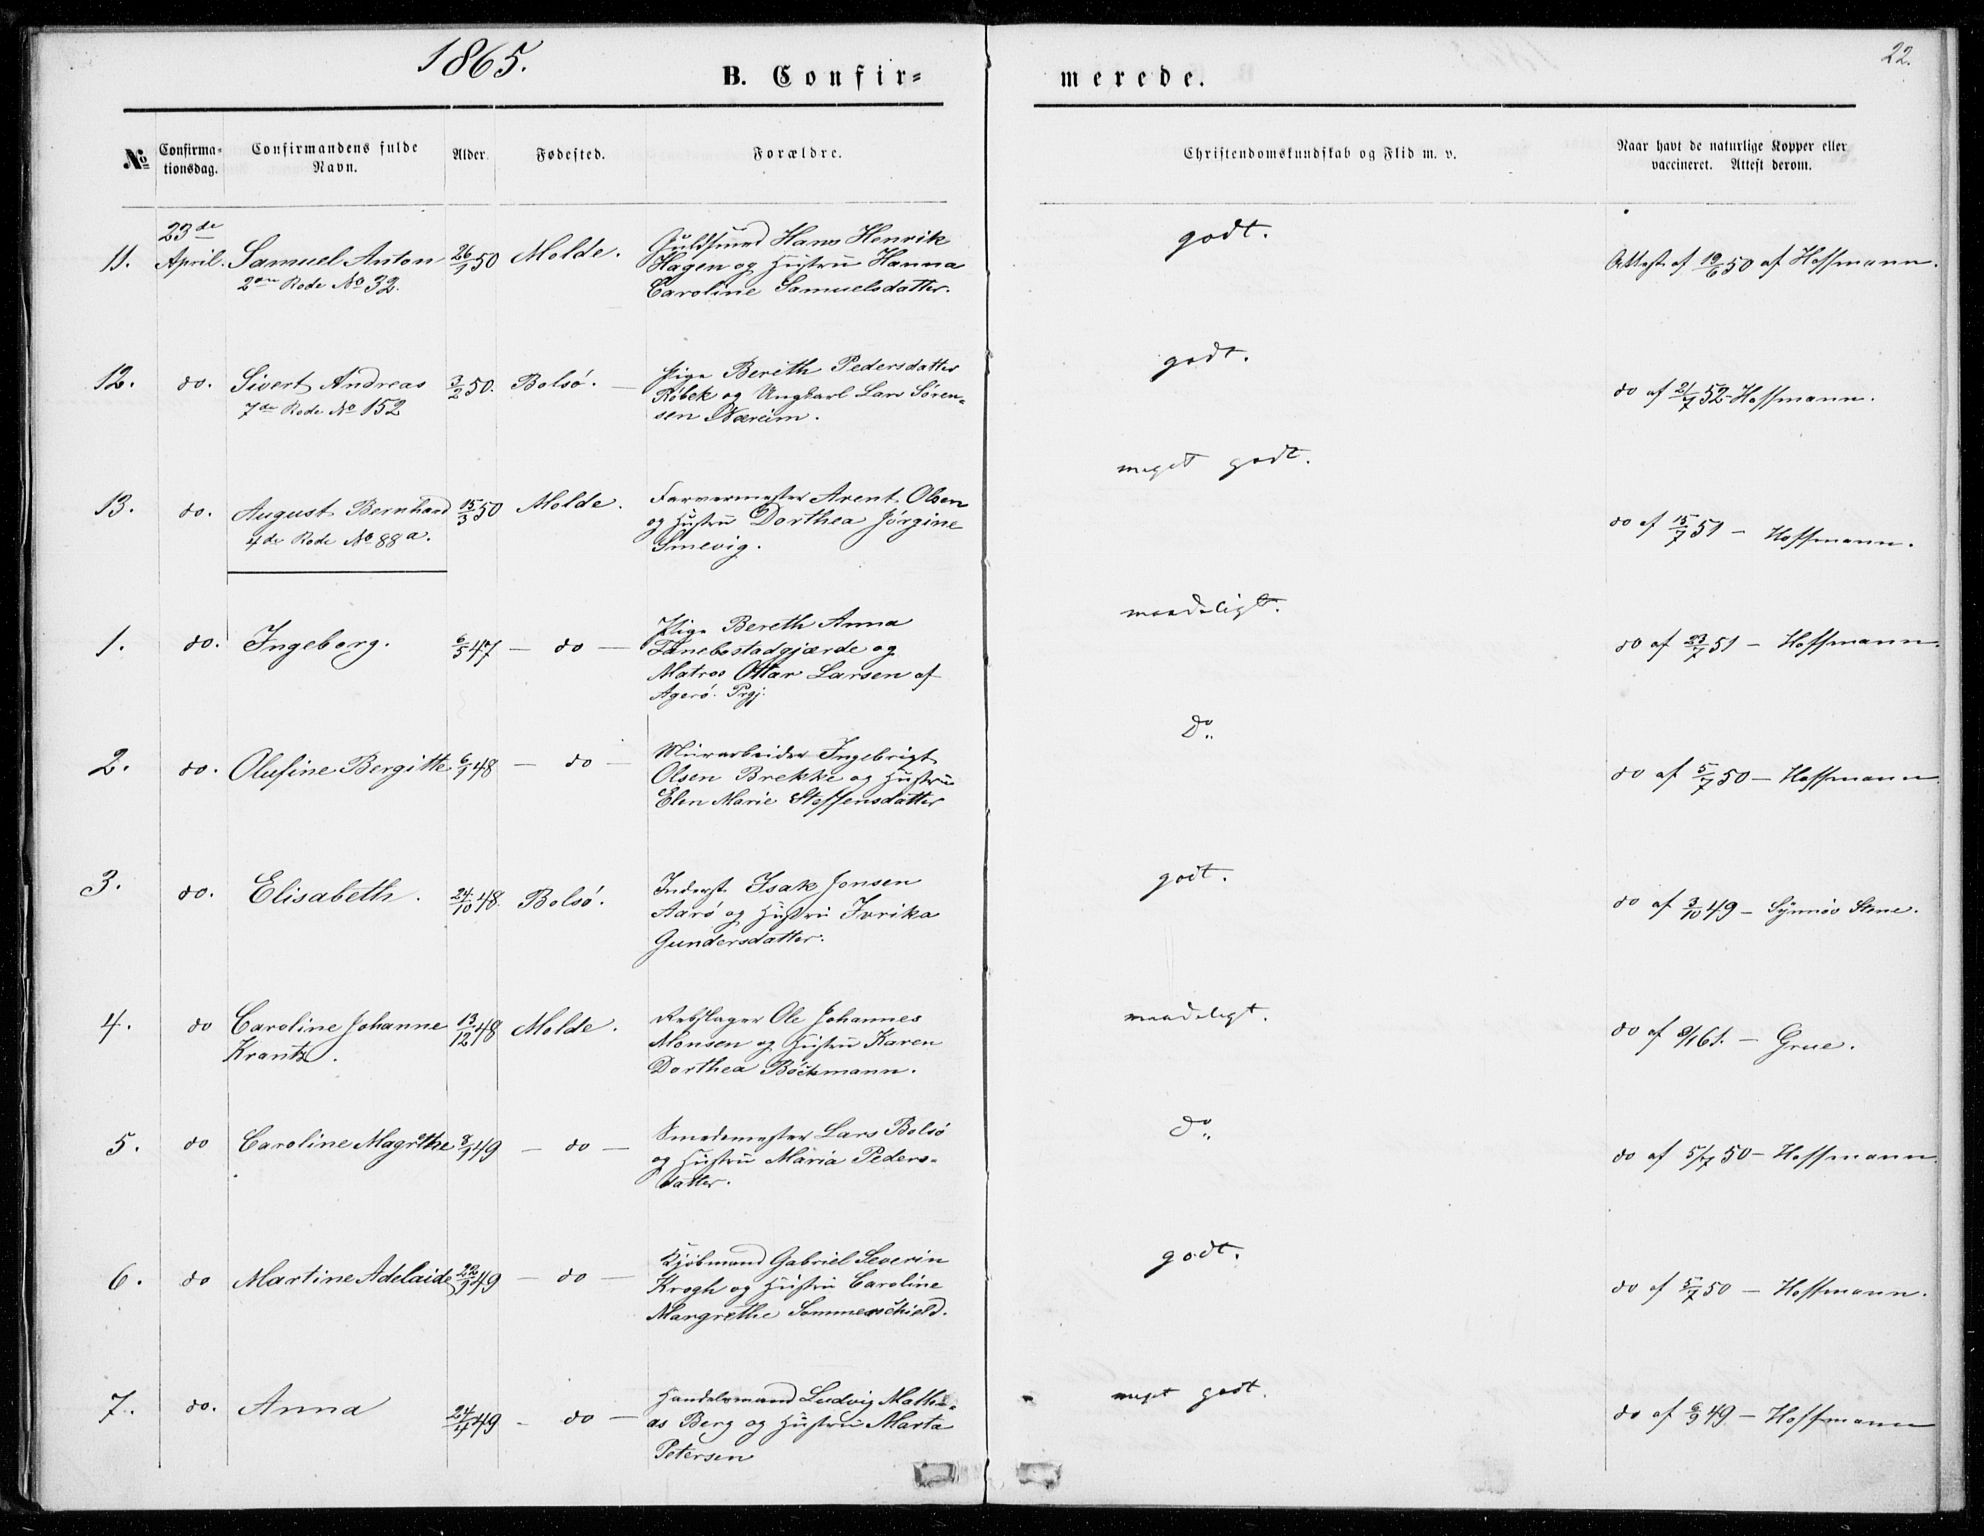 1865.
22.
B. Confir=
merede.
No
Confirma=
tionsdag.
Confirmandens fulde
Navn.
Alder
Fødested.
Forældre.
Christendomskundskab og Flid m. v.
Naar havt de naturlige Kopper eller
vaccineret. Attest derom.
11. 23de April. Samuel Anton 26/1 50 Molde. Guldsmed Hans Henrik godt. Attest af 19/6 50 af Hoffmann.
2den Rode No 32. Hagen og Hustru Hanna
Caroline Samuelsdatter.
12. do. Sivert Andreas 3/2 50. Bolsö. Pige Berith Pedersdatter godt. do af 21/7 52 - Hoffmann.
7de Rode No 152 Röbek og Ungkarl Lars Sören-
sen Nereim.
13. do. August Bernhard 15/3 50 Molde. Farvermester Arent Olsen meget godt. do af 15/7 51 - Hoffmann.
4de Rode No 88 a. og Hustru Dorthea Jörgine
Smevig.
1. do. Ingeborg. 6/5 47 - do - Pige Bereth Anna maadeligt. do af 23/7 51 - Hoffmann.
Fanebostadgjærde og
Matros Ottar Larsen af
Agerö Prgj.
2. do. Olufine Bergitte 6/1 48 - do - Murarbeider Ingebrigt Do. do af 5/7 50 - Hoffmann
Olsen Brekke og Hustru
Elen Marie Steffensdatter
3. do. Elisabeth. 24/10 48. Bolsö. Inderst Isak Jonsen godt. do af 3/10 49 - Synnöv Stene.
Aarö og Hustru Ivrika
Gundersdatter.
4. do Caroline Johanne 13/12 48 Molde. Rebslager Ole Johannes maadeligt. do af 8/1 61. - Grue.
Krantz. Monsen og Hustru Karen
Dorthea Böckmann.
5. do Caroline Magrethe 8/1 49 - do - Smedemester Lars Bolsö do. do af 5/7 50 - Hoffmann.
og Hustru Maria Peders-
datter.
6. do Martine Adelaide 22/9 49 - do - Kjöbmand Gabriel Severin godt. do af 5/7 50 - Hoffmann.
Krogh og Hustru Caroline
Margrethe Sommerschield.
7. do. Anna 24/4 49 - do - Handelsmand Ludvig Mathi- meget godt. do af 6/9 49 - Hoffmann
as Berg og Hustru Marta
Petersen